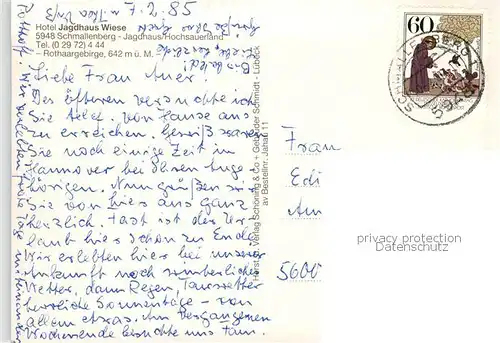 7.2.85
Hotel Jagdhaus Wiese
5948 Schmallenberg - Jagdhaus/Hochsauerland
Tel. (0 29 72) 4 44
– Rothaargebirge, 642 m ü. M.
Liebe Frau Auer!
Des öfteren versuchte ich
Sie telef. von Hause aus
zu erreichen. Gewiß waren
Sie noch einige Zeit in
Hannover bei Ihren Ange-
hörigen. Nun grüßen wir
Sie von hier aus ganz
herzlich. Fast ist der Ur-
laub hier schon zu Ende.
Wir erlebten hier bei unserer
Ankunft noch winterliches
Wetter, dann Regen, Tauwetter
herrliche Sonnentage – von
allem etwas. Am vergangenen
Wochenende besuchte uns Fam.
Potthoff. Wir verlebten frohe Tage miteinander
Verlag Schöning & Co + Gebrüder Schmidt - Lübeck
Bestellnr. Jahau 11
60
SCHMALLENBERG
Frau
Edi
5600
privacy protection
Datenschutz